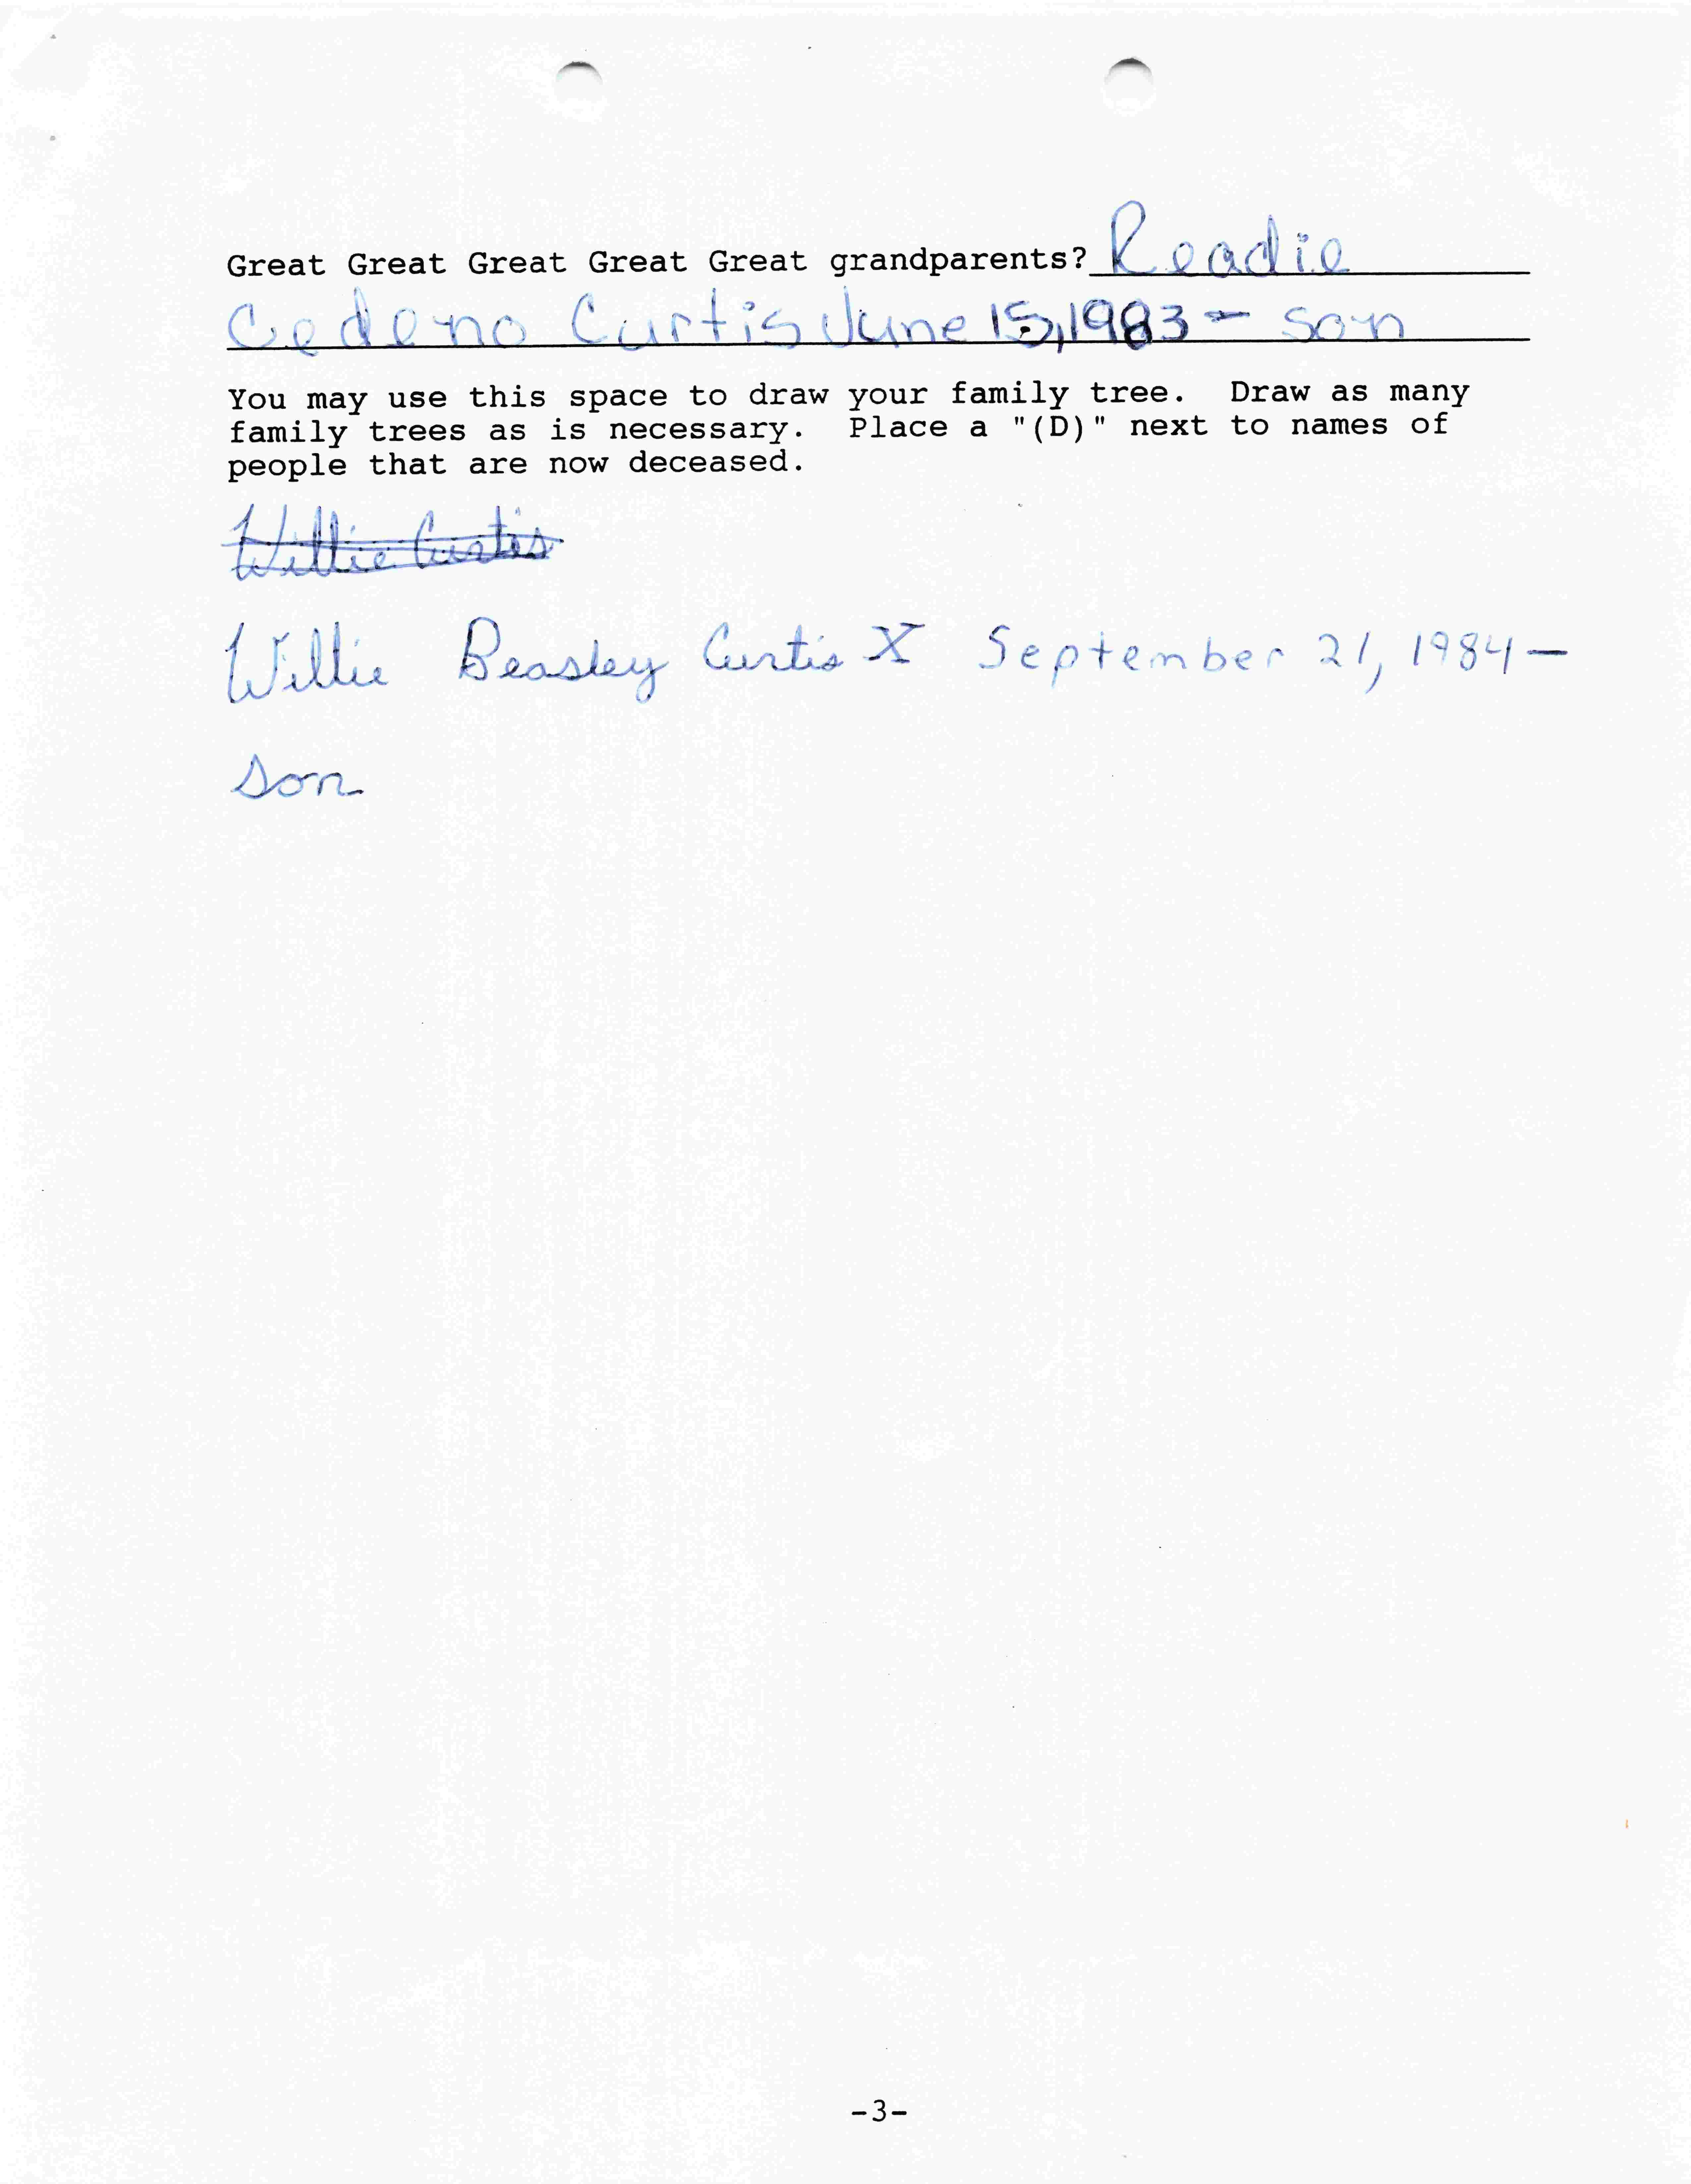 Great Great Great Great Great grandparents? Readie
Cedeno Curtis June 15, 1983 - son
You may use this space to draw your family tree. Draw as many
family trees as is necessary. Place a "(D)" next to names of
people that are now deceased.
Willie Curtis
Willie Beasley Curtis X September 21, 1984 -
son
-3-